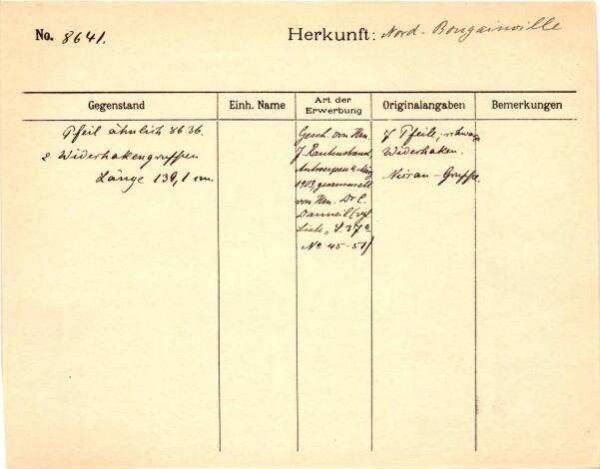 No. 8641.
Herkunft: Nord-Bougainville
Gegenstand
Einh. Name
Art der Erwerbung
Originalangaben
Bemerkungen
Pfeil ähnlich 8636.
2 Widerhakengruppen
Länge 139,1 cm.
Gesch. von Hrn.
J. Rautenstrauch,
Antwerpen
1913, gesammelt
von Hrn. Dr. C.
Danneil (vgl.
Liste, S. 37a
No 45-51)
7 Pfeile, schwarze
Widerhaken.